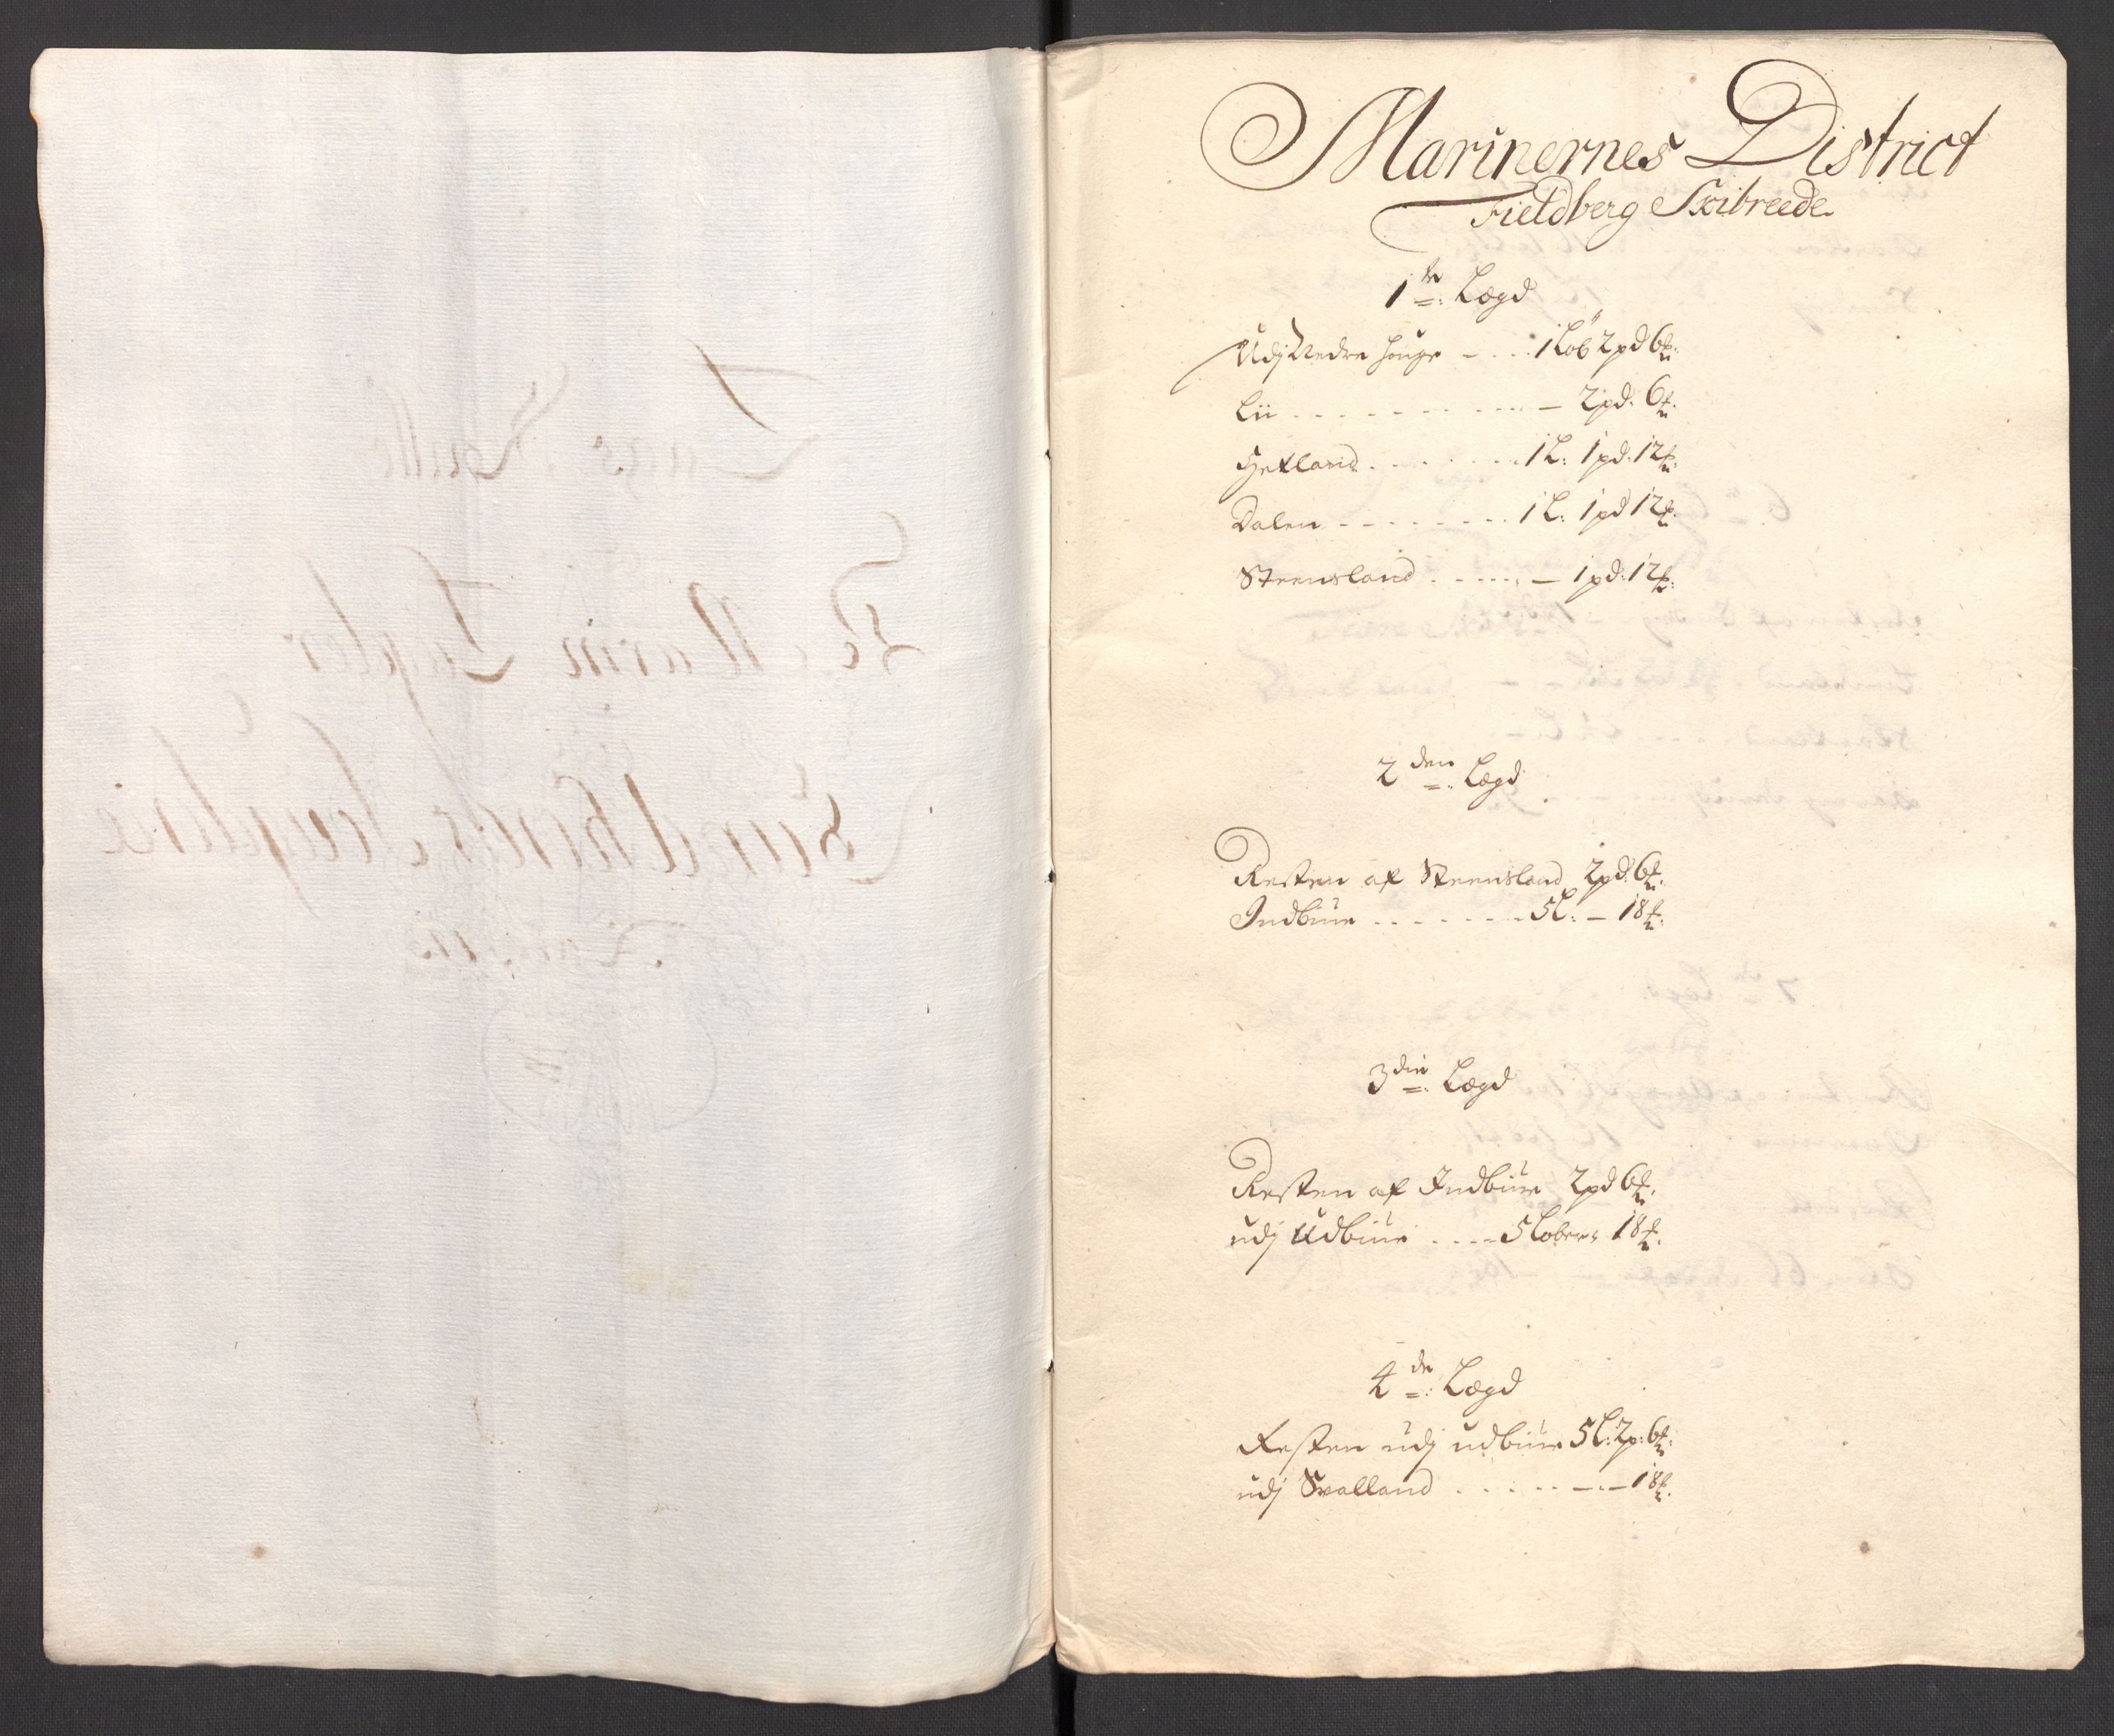 Marinernes District
Fieldberg Skibreede
1te Lægd
Udj Nedre Houge - . . . 1 Løb 2 pd 6 ℔.
Lii . . . . . . . . . . . — 2 pd. 6 ℔.
Hetland . . . . . . . 1 L. 1 pd. 12 ℔.
Dalen - - - - - - - . 1 L. 1 pd 12 ℔.
Steensland . . . . . — 1 pd. 12 ℔.
2den Lægd
Resten af Steensland 2 pd. 6 ℔.
Indbiue . . . . . . . 5 L. — 18 ℔.
3die Lægd
Resten af Indbiue 2 pd 6 ℔.
udj Udbiue . . . . 5 Løber 18 ℔.
4de Lægd
Resten udj udbiue 5 L. 2 p. 6 ℔.
udj Svalland . . . . . —.— 18 ℔.